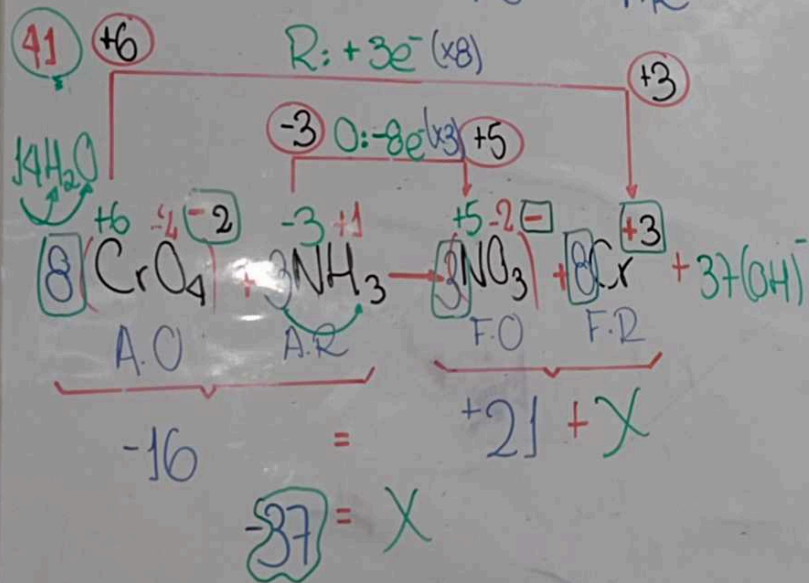 41 +6 R: +3e⁻ (x8) +3
-3 O: -8e⁻(x3) +5
14H₂O
+6 -2 -2 -3 +1 +5 -2 - +3
8(CrO₄) + 3NH₃ → 3(NO₃) + 8Cr + 37(OH)⁻
A.O A.R F.O F.R
-16 = +21 + X
-37 = X